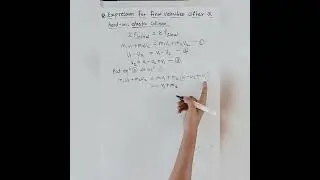 Expression for final velocities after a
head-on, elastic collision
Σ Pinitial = Σ Pfinal
m₁u₁+m₂u₂ = m₁v₁+m₂v₂ - ①
u₁ - u₂ = v₂ - v₁ - ②
v₂ = u₁ - u₂ + v₁ - ③
Put eqⁿ ③ in eqⁿ ①
m₁u₁+m₂u₂ = m₁v₁+m₂(u₁-u₂+v₁)
= m₁v₁+m₂